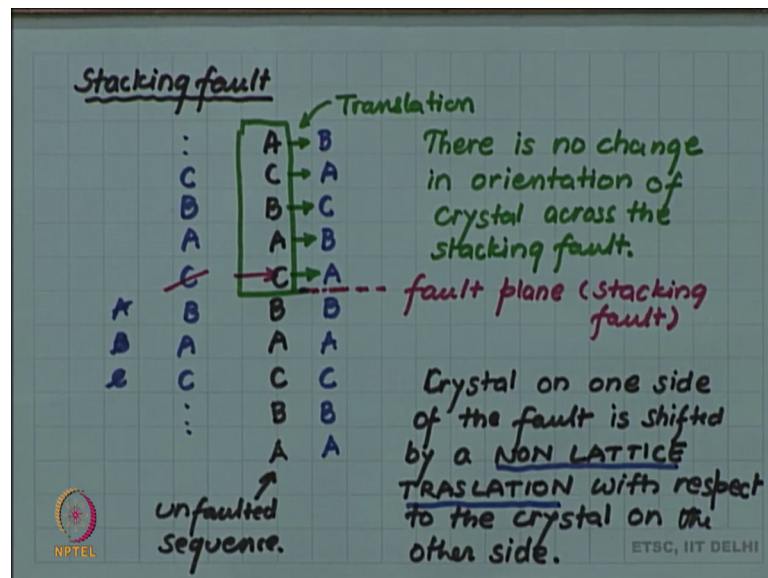 Stacking fault
Translation
:
C
B
A
C
A B
B A
C
:
A → B
C → A
B → C
A → B
C → A
B B
A A
C C
B B
A A
unfaulted
sequence.
There is no change
in orientation of
crystal across the
stacking fault.
fault plane (stacking
fault)
Crystal on one side
of the fault is shifted
by a NON LATTICE
TRASLATION with respect
to the crystal on the
other side.
NPTEL
ETSC, IIT DELHI